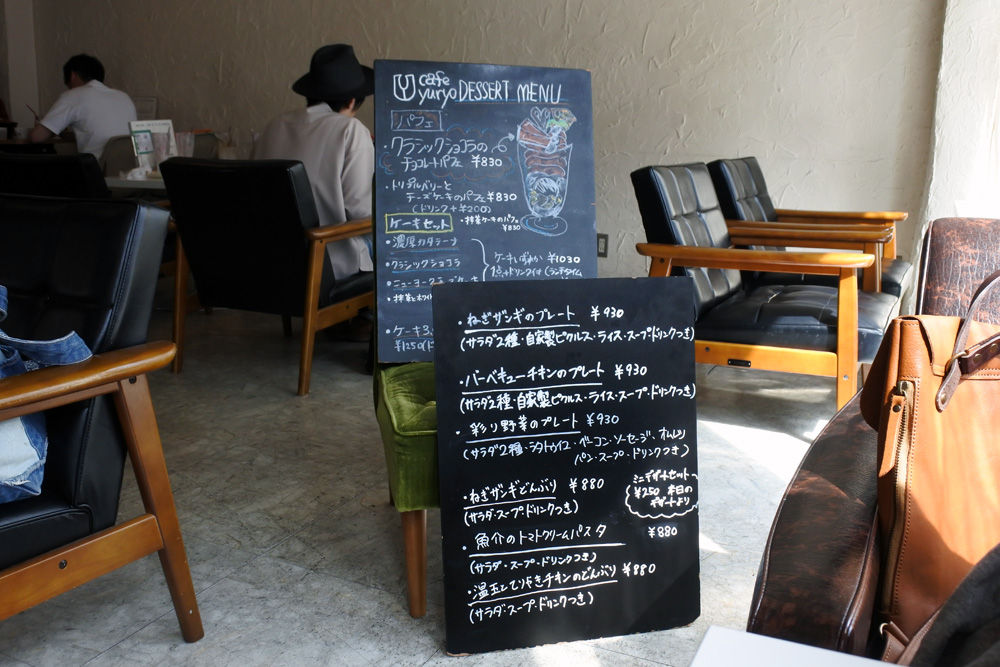 cafe
yuryo DESSERT MENU
パフェ
・クラシックショコラの
チョコレートパフェ ¥830
・トリプルベリーと
チーズケーキのパフェ ¥830
(ドリンク+¥200)
・抹茶ケーキのパフェ
¥830
ケーキセット
・濃厚カタラーナ
・クラシックショコラ
・ニューヨークチーズケーキ
ケーキいずれか ¥1030
1点+ドリンク付 (ランチタイム
・抹茶とホワイ
・ケーキ
¥250
・ねぎザンギのプレート ¥930
(サラダ2種・自家製ピクルス・ライス・スープドリンクつき)
・バーベキューチキンのプレート ¥930
(サラダ2種・自家製ピクルス・ライス・スープ・ドリンクつき)
・彩り野菜のプレート ¥930
(サラダ2種・ラタトゥイユ・ベーコン・ソーセージ、オムレツ
パン・スープ・ドリンクつき)
・ねぎザンギどんぶり ¥880
(サラダ・スープ・ドリンクつき)
ミニデザートセット
¥250 本日の
デザートより
・魚介のトマトクリームパスタ ¥880
(サラダ・スープ・ドリンクつき)
・温玉とてりやきチキンのどんぶり ¥880
(サラダ・スープ・ドリンクつき)